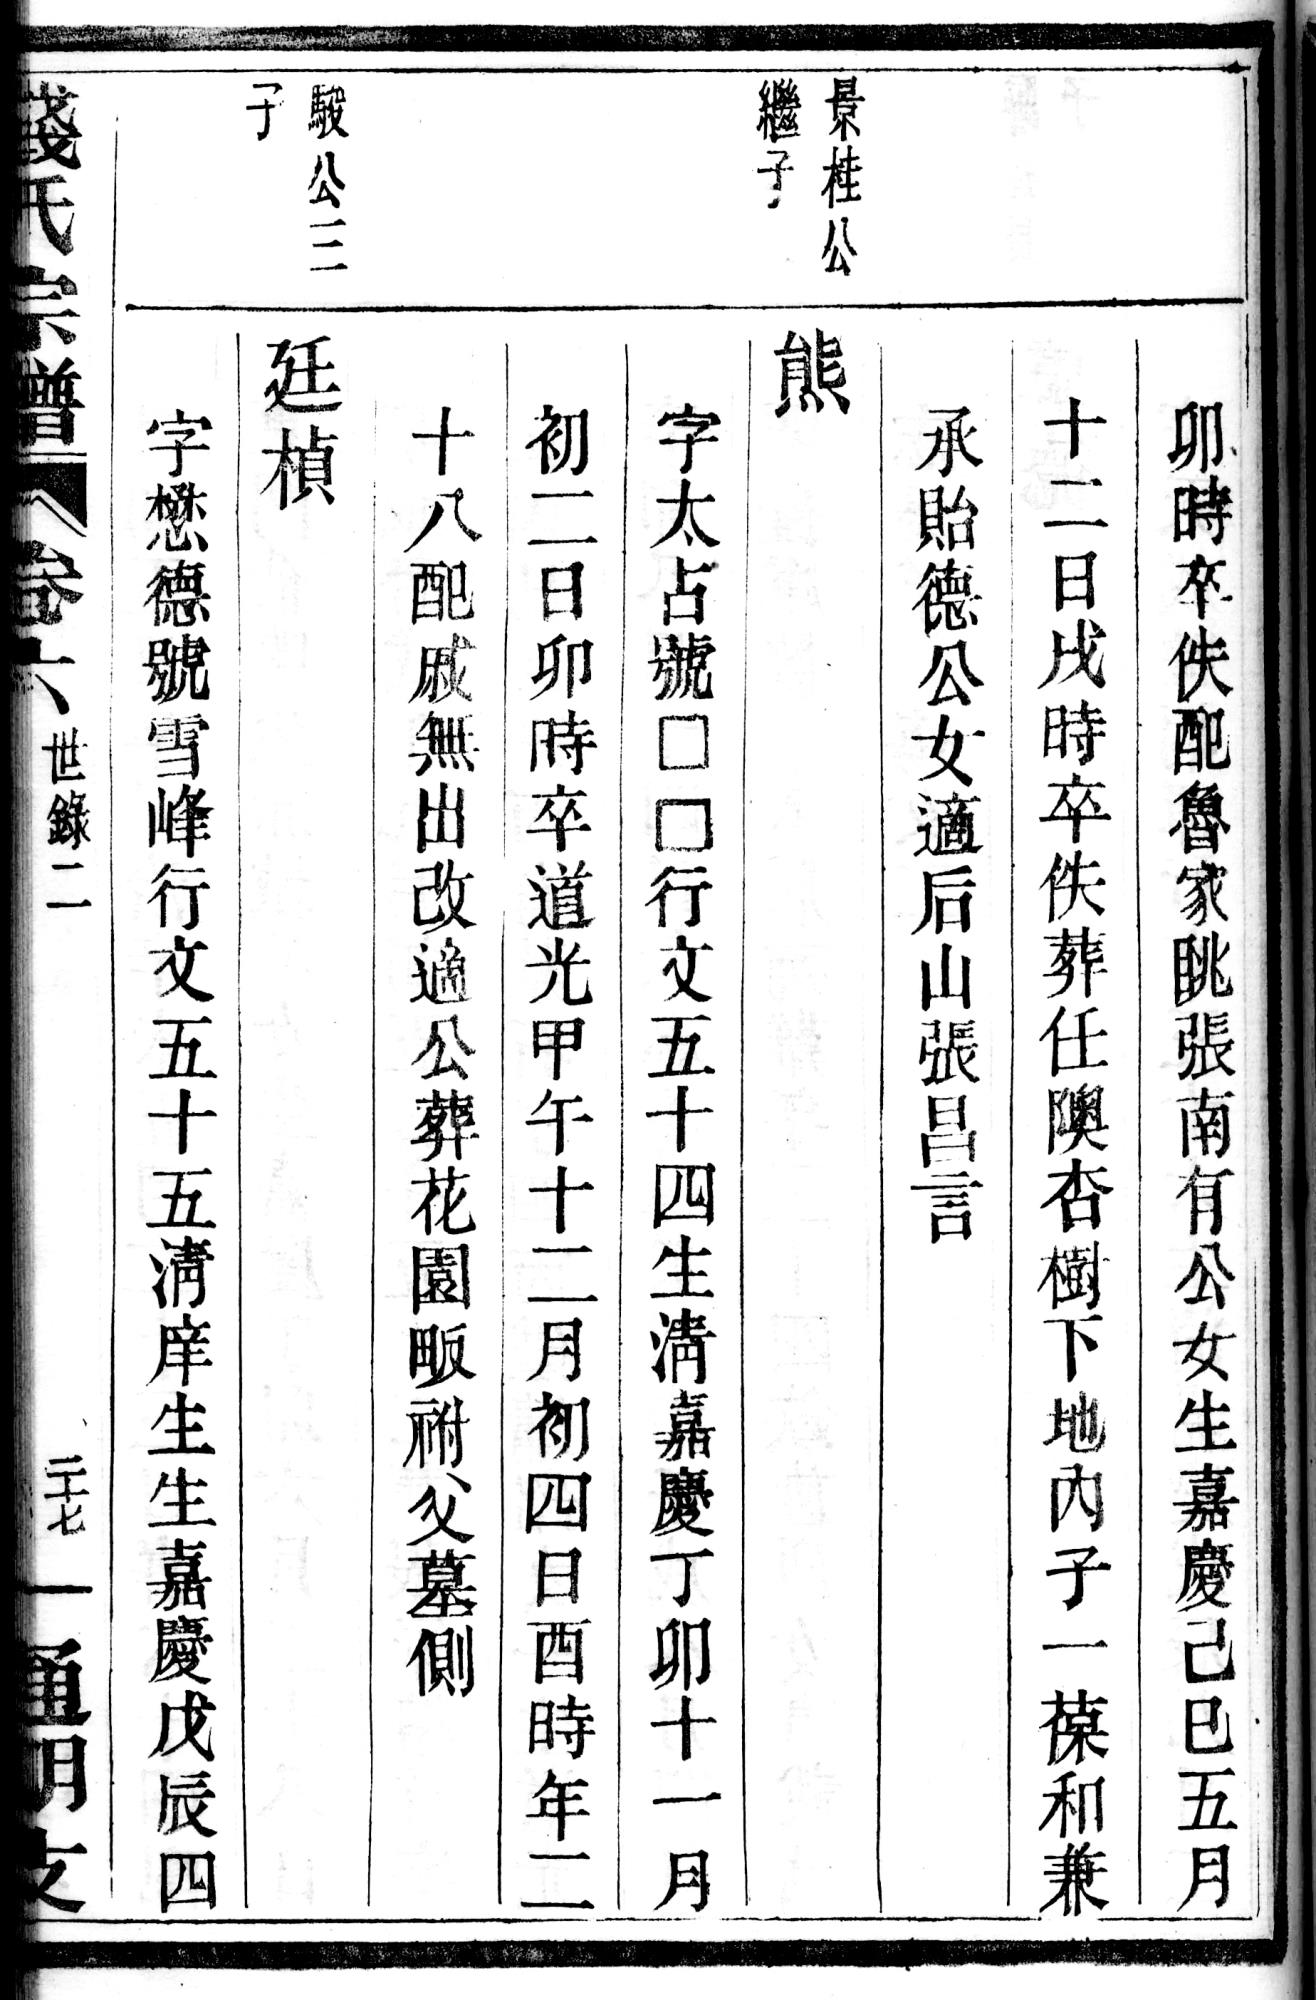 卯時卒佚配魯家眺張南有公女生嘉慶己巳五月
十二日戌時卒佚葬任隩杏樹下地內子一葆和兼
承貽德公女適后山張昌言
景桂公
繼子
熊
字太占號□□行文五十四生淸嘉慶丁卯十一月
初二日卯時卒道光甲午十二月初四日酉時年二
十八配戚無出改適公葬花園畈祔父墓側
駿公三
子
廷楨
字懋德號雪峰行文五十五淸庠生生嘉慶戊辰四
錢氏宗譜 卷六 世錄二 二十七 一通明支